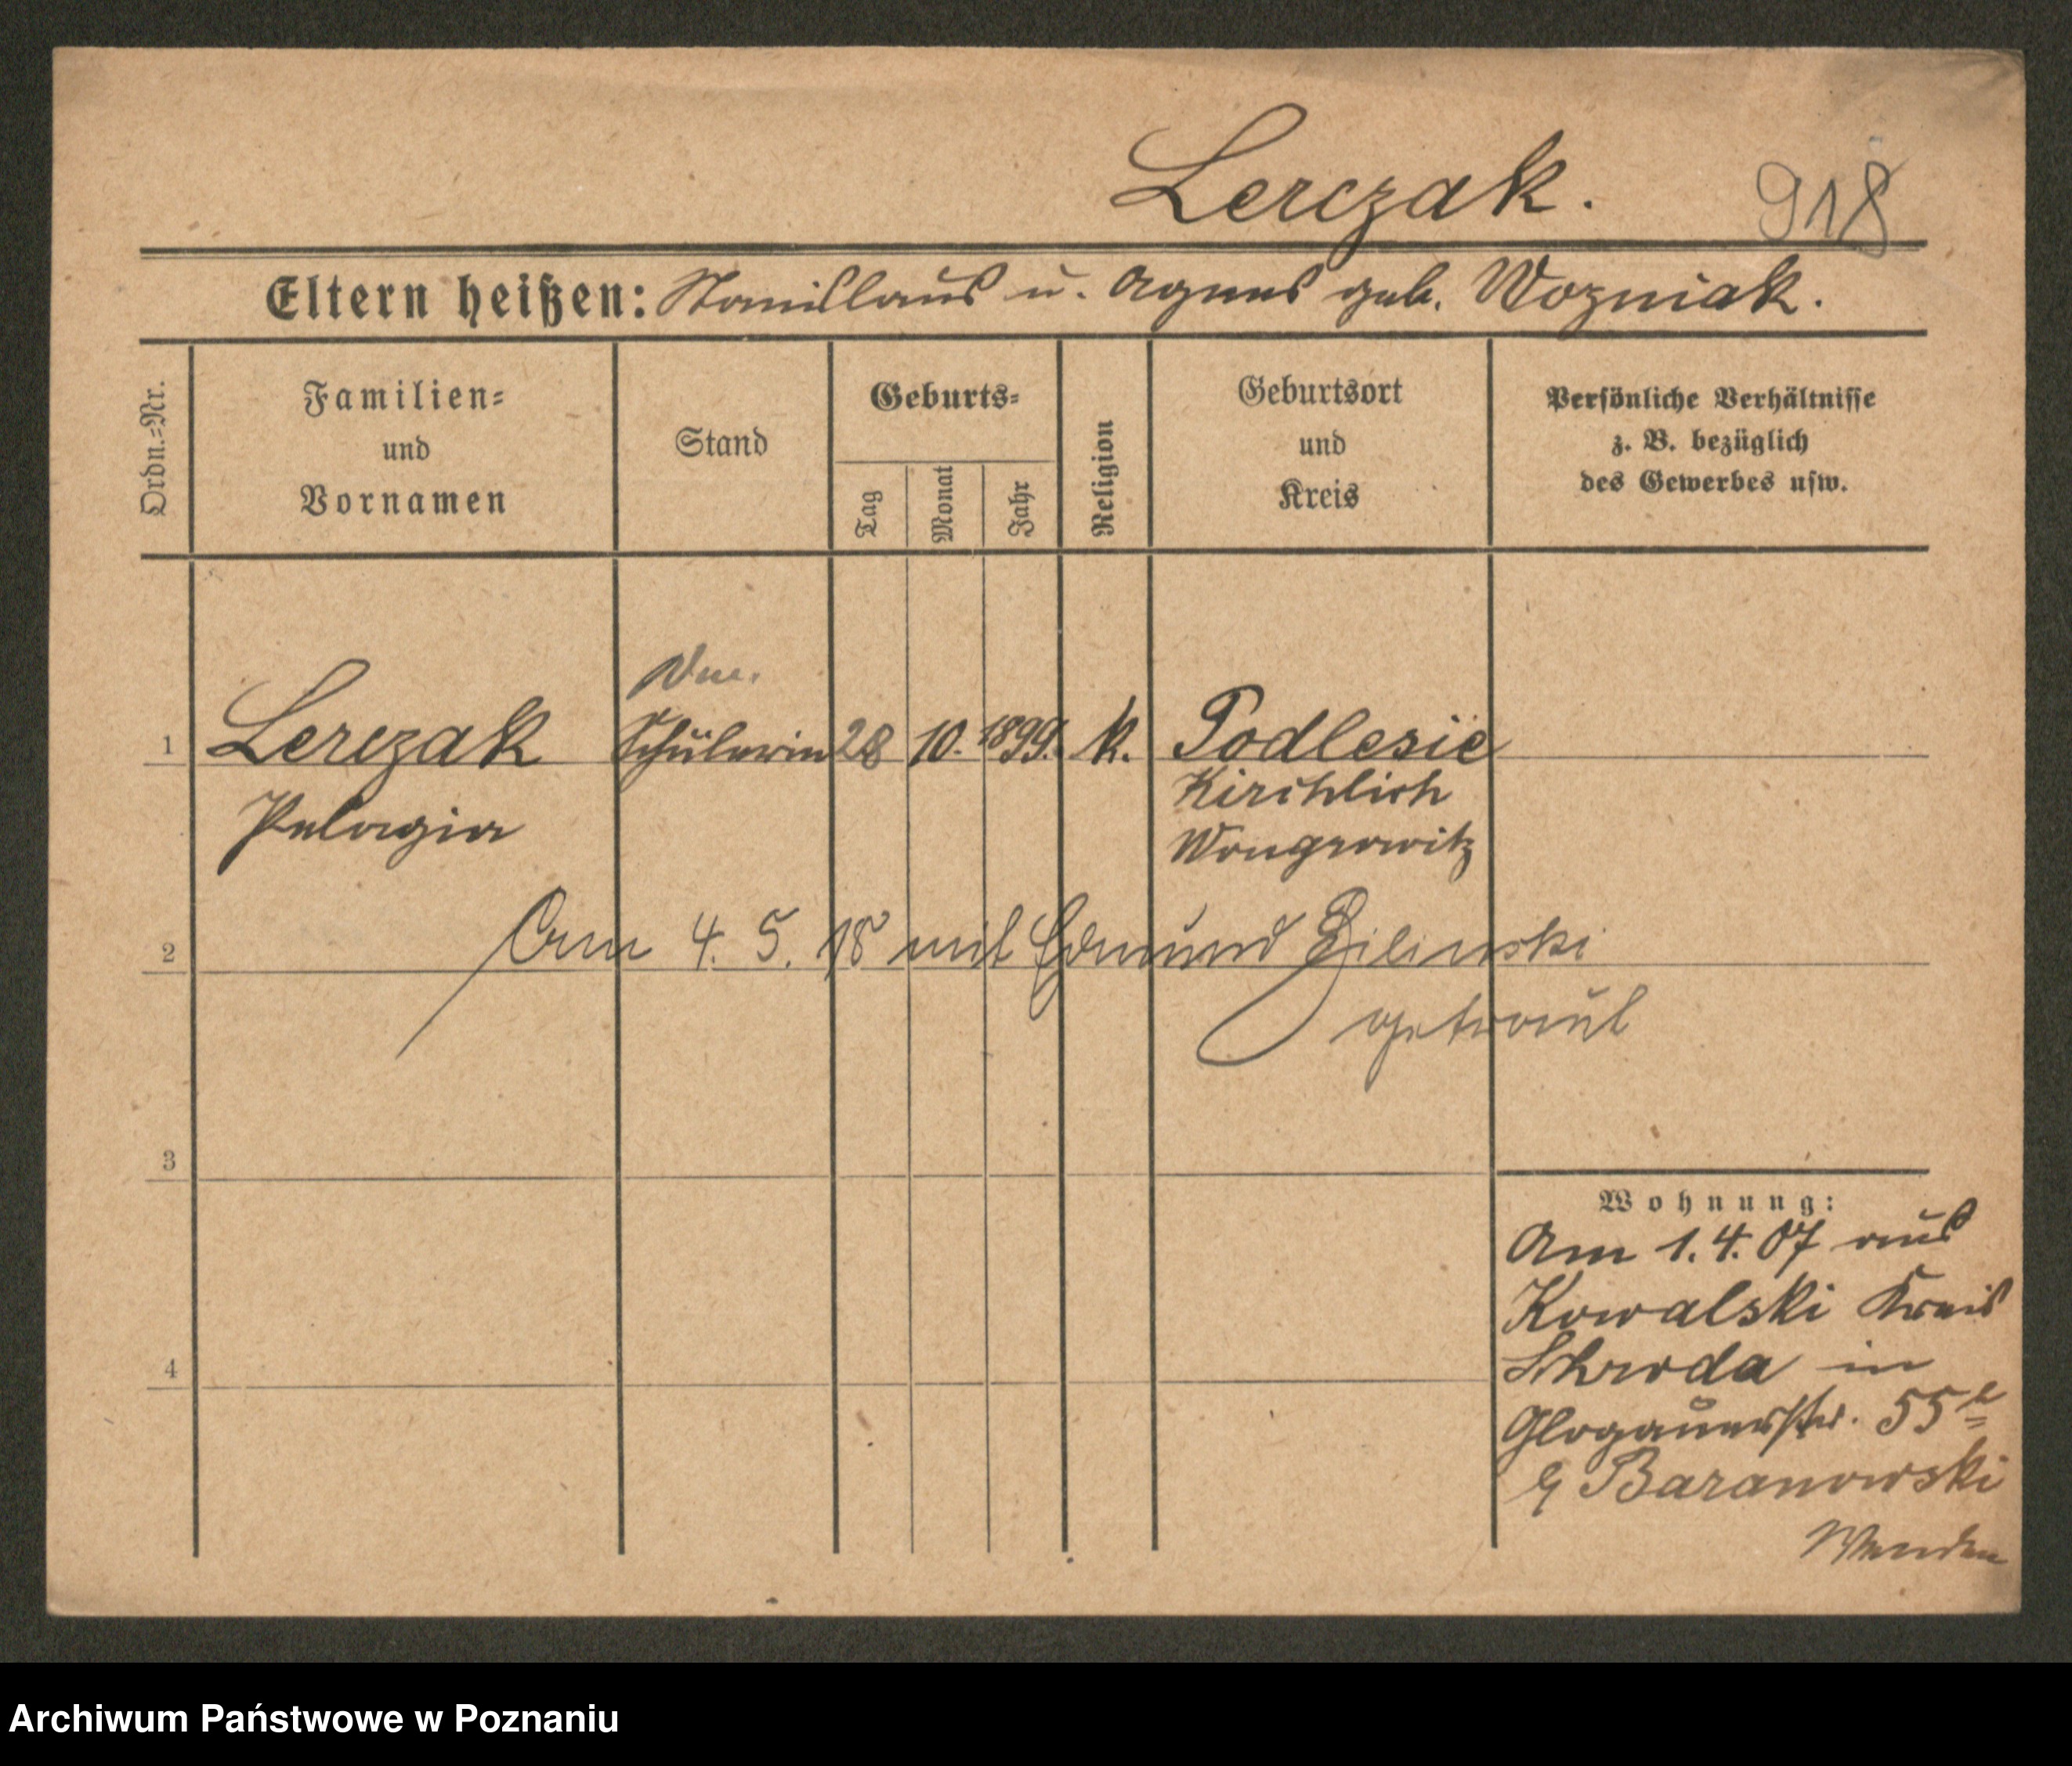 Lerczak. 918
Eltern heißen: Stanislaus u. Agnes geb. Wozniak.
Ordn.=Nr.
Familien=
und
Vornamen
Stand
Geburts=
Tag
Monat
Jahr
Religion
Geburtsort
und
Kreis
Persönliche Verhältnisse
z. B. bezüglich
des Gewerbes usw.
1 Lerczak Schülerin 28 10. 1899. k. Podlesie
Kirchlich
Pelagia Wongrowitz
2 Am 4. 5. 18 mit Edmund Bilinski
getraut
3
Wohnung:
Am 1. 4. 07 aus
Kowalski Kreis
4 Schroda in
Glogauerstr. 55
Baranowski
Wenden
Archiwum Państwowe w Poznaniu